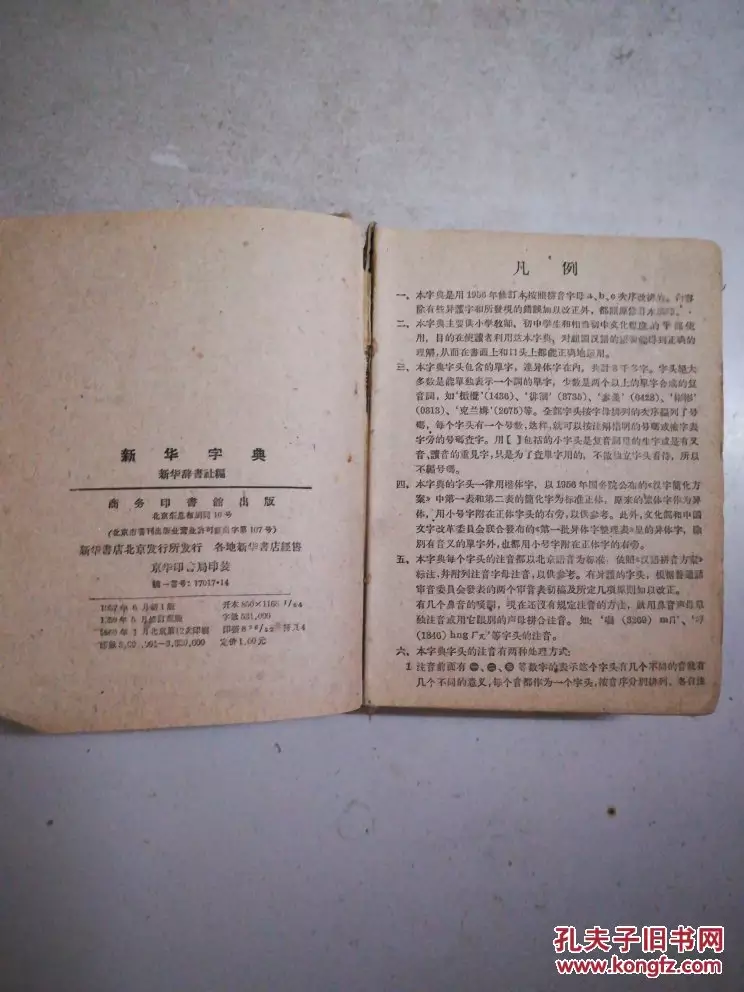 新华字典
新华辞书社編
商务印書館出版
北京
(北京市書刊出版业营业許可証出字第107号)
新华書店北京发行所发行 各地新华書店經售
京华印書局印装
統一書号：17017·14
1957年6月新1版
开本850×1168 1/64
字数531,000
定价1.00元
凡例
一、本字典是用1956年修訂本按照拼音字母a、b、c次序改排的。内容
除有些异讀字和所發現的錯誤加以改正外，都照原修訂本
二、本字典主要供小学教師、初中学生和相当初中文化程度的干部使
用，目的在使讀者利用这本字典，对祖国汉語的語彙能得到正确的
理解，从而在書面上和口头上都能正确地运用。
三、本字典字头包含的單字，連异体字在内，共計8千多字。字头絕大
多数是能單独表示一个詞的單字，少数是两个以上的單字合成的复
音詞，如(1436)、‘徘徊’(3735)、(0428)、
(0313)、(2675)等。全部字头按字母排列的次序編列了号
碼，每个字头有一个号数，这样，就可以按注明指明的号碼或檢字表
字旁的号碼查字。用【 】包括的小字头是复音詞里的生字或是有又
音、讀音的重見字，只是为了查單字用的，不做独立字头看待，所以
不編号碼。
四、本字典的字头一律用楷体字，以1956年国务院公布的《汉字簡化方
案》中第一表和第二表的簡化字为标准正体，原来的繁体字作为异
体，用小号字附在正体字头的右旁，以供参考。此外，文化部和中国
文字改革委員会联合發布的《第一批异体字整理表》里的异体字，除
別有音义的單字外，也都用小号字附在正体字的右旁。
五、本字典每个字头的注音都以北京語音为标准，依照《汉語拼音方案》
标注，并附列注音字母注音，以供参考。有异讀的字头，根据普通話
审音委員会發表的两个审音表初稿及所定几項原則加以改正。
有几个鼻音的嘆詞，現在还沒有規定注音的方法，就用鼻音声母單
独注音或用它跟別的声母拼合注音。如(3209) m∏、‘哼’
(1846) hng 厂兀等字头的注音。
六、本字典字头的注音有两种处理方式：
1 注音前面有㊀、㊁、㊂等数字的表示这个字头有几个不同的音或有
几个不同的意义，每个音都作为一个字头，按音序分別排列，各自注
孔夫子旧书网
www.kongfz.com